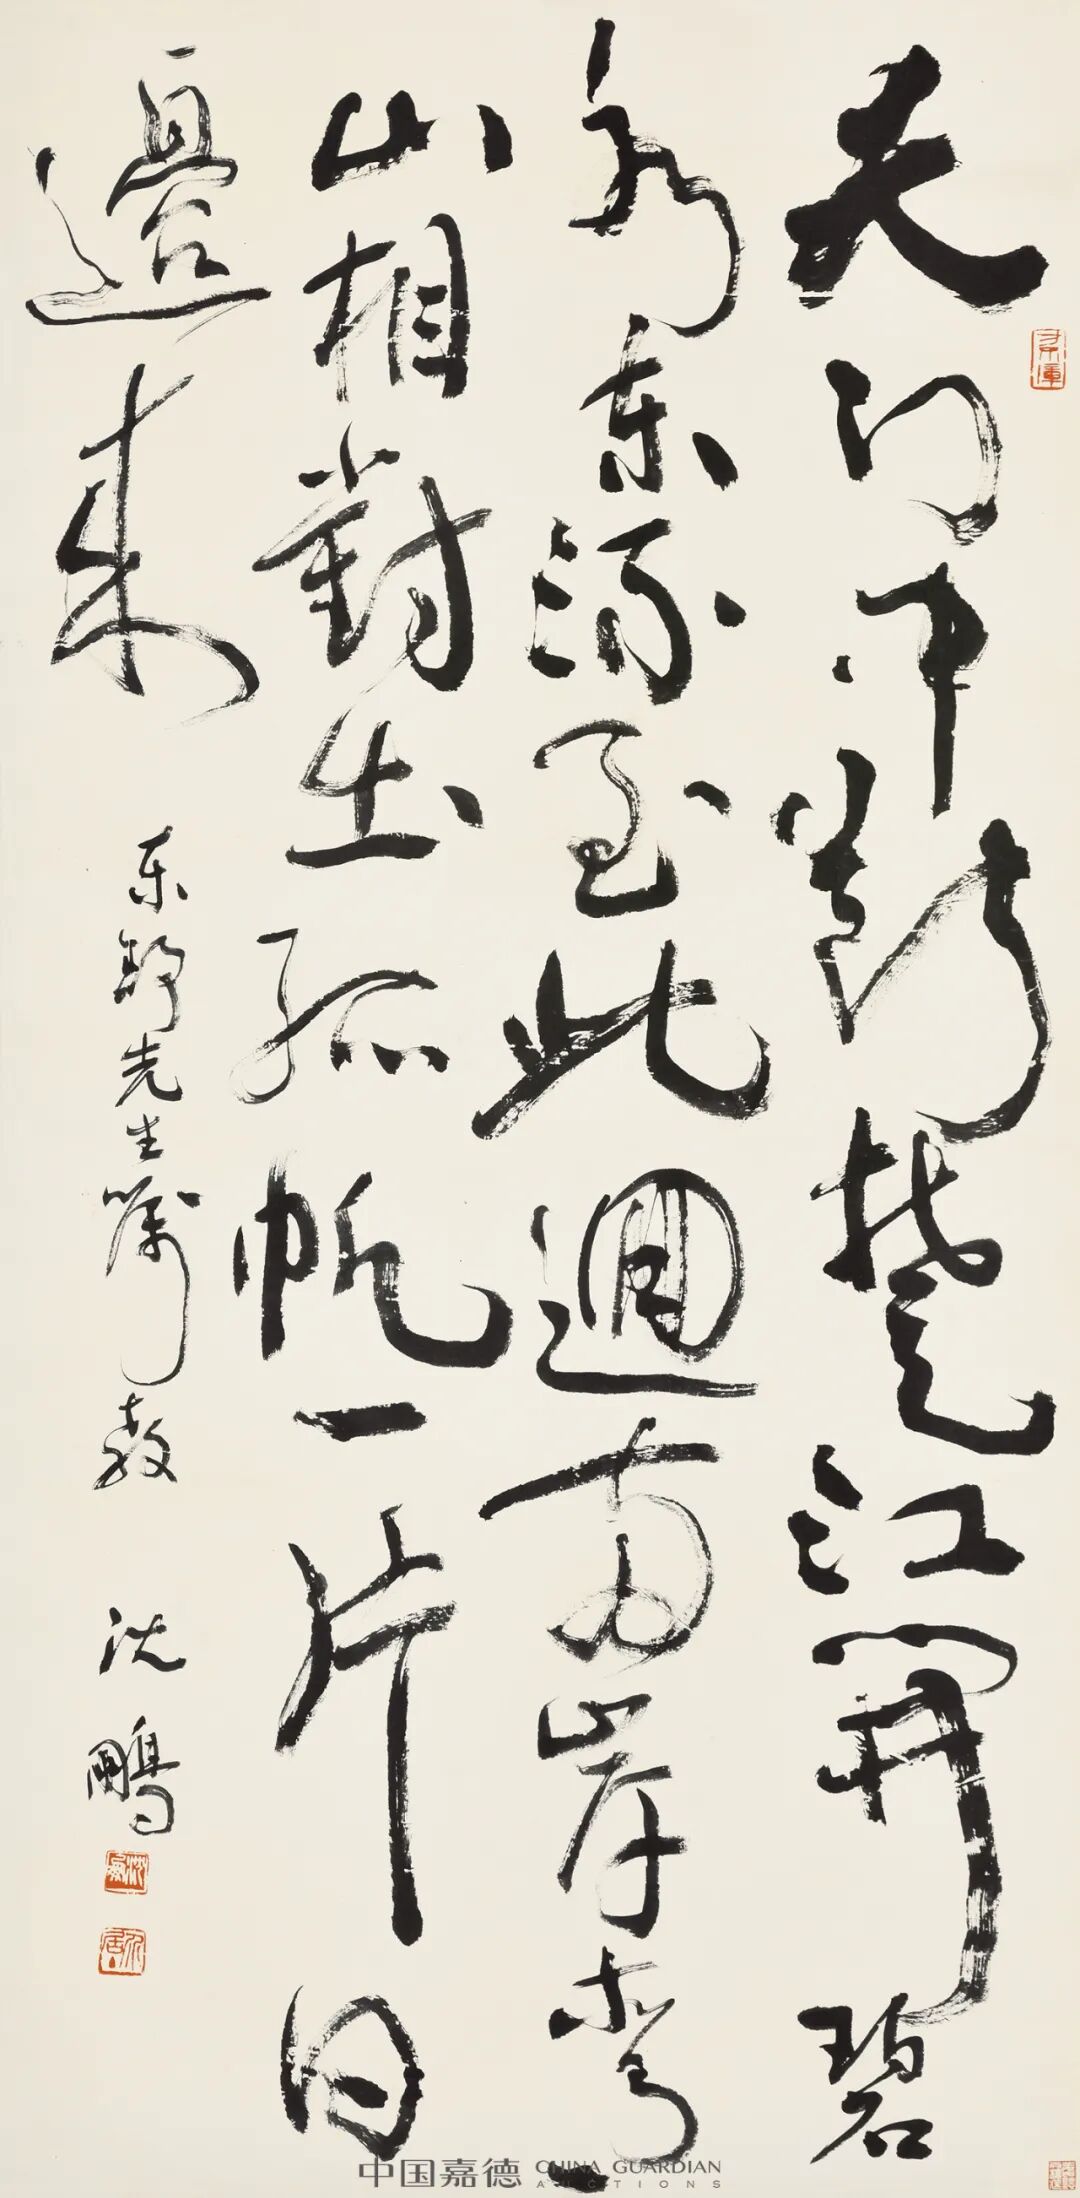 天門中斷楚江開碧
水東流至此迴兩岸青
山相對出孤帆一片日
邊來
東舒先生嘱教
沈鵬
中国嘉德 CHINA GUARDIAN
AUCTIONS